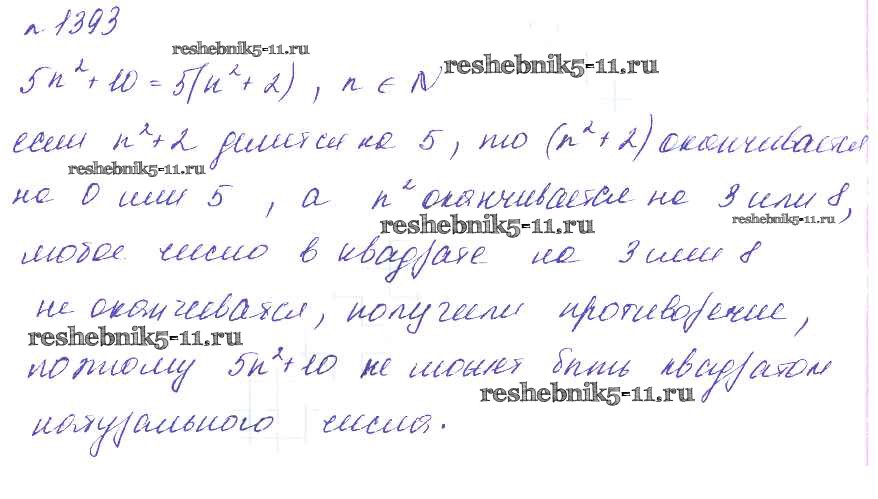 n 1393
reshebnik5-11.ru
5n² + 10 = 5(n² + 2), n ∈ N
reshebnik5-11.ru
если n² + 2 делится на 5, то (n² + 2) оканчивается
reshebnik5-11.ru
на 0 или 5, а n² оканчивается на 3 или 8,
reshebnik5-11.ru
reshebnik5-11.ru
любое число в квадрате на 3 или 8
не оканчивается, получили противоречие,
reshebnik5-11.ru
поэтому 5n² + 10 не может быть квадратом
reshebnik5-11.ru
натурального числа.